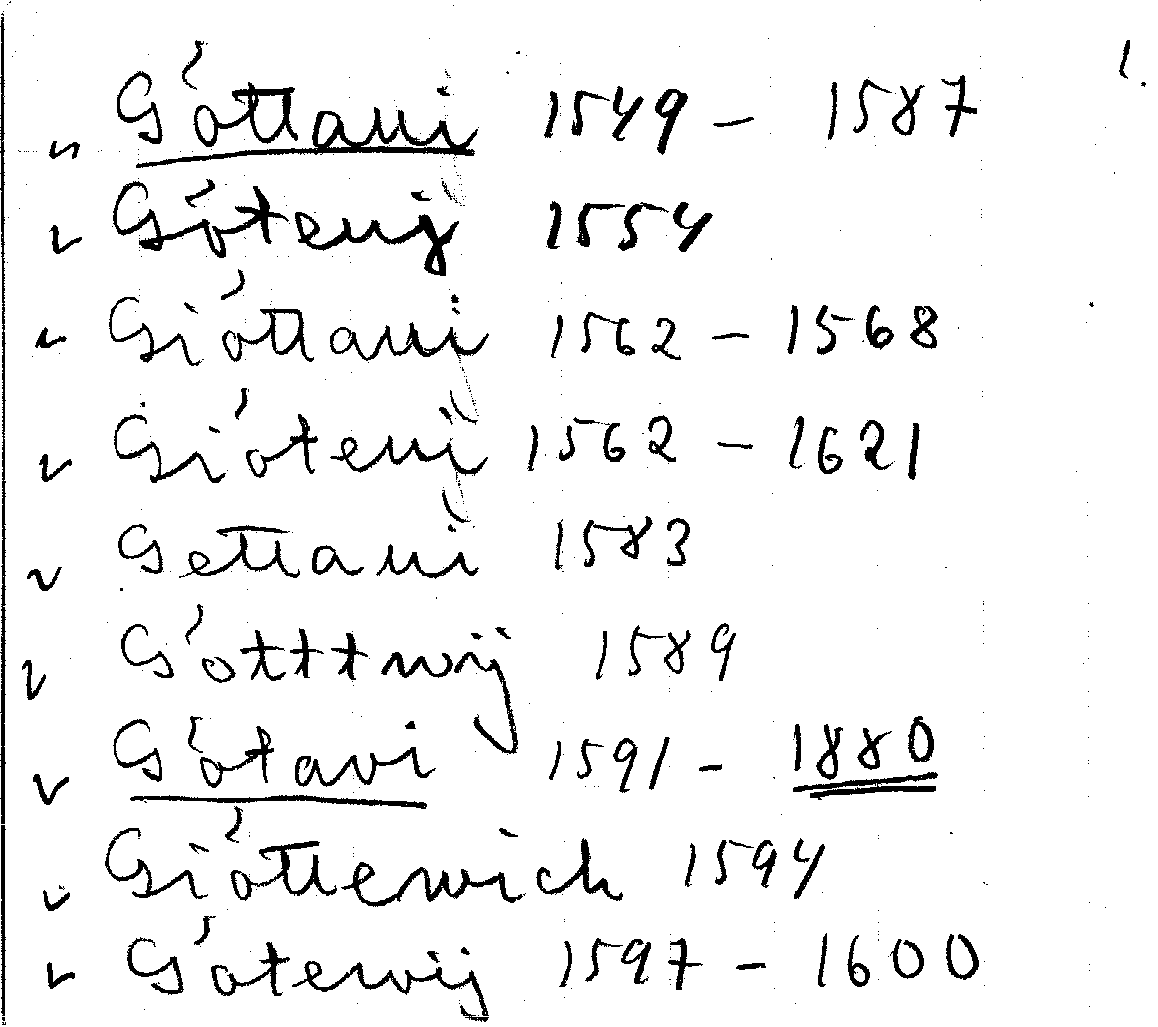 1.
Góttaui 1549 – 1587
Góteuij 1554
Gióttaui 1562 – 1568
Gióteui 1562 – 1621
Gettaui 1583
Gótttwij 1589
Gótavi 1591 – 1880
Giótterwich 1594
Gótewij 1597 – 1600